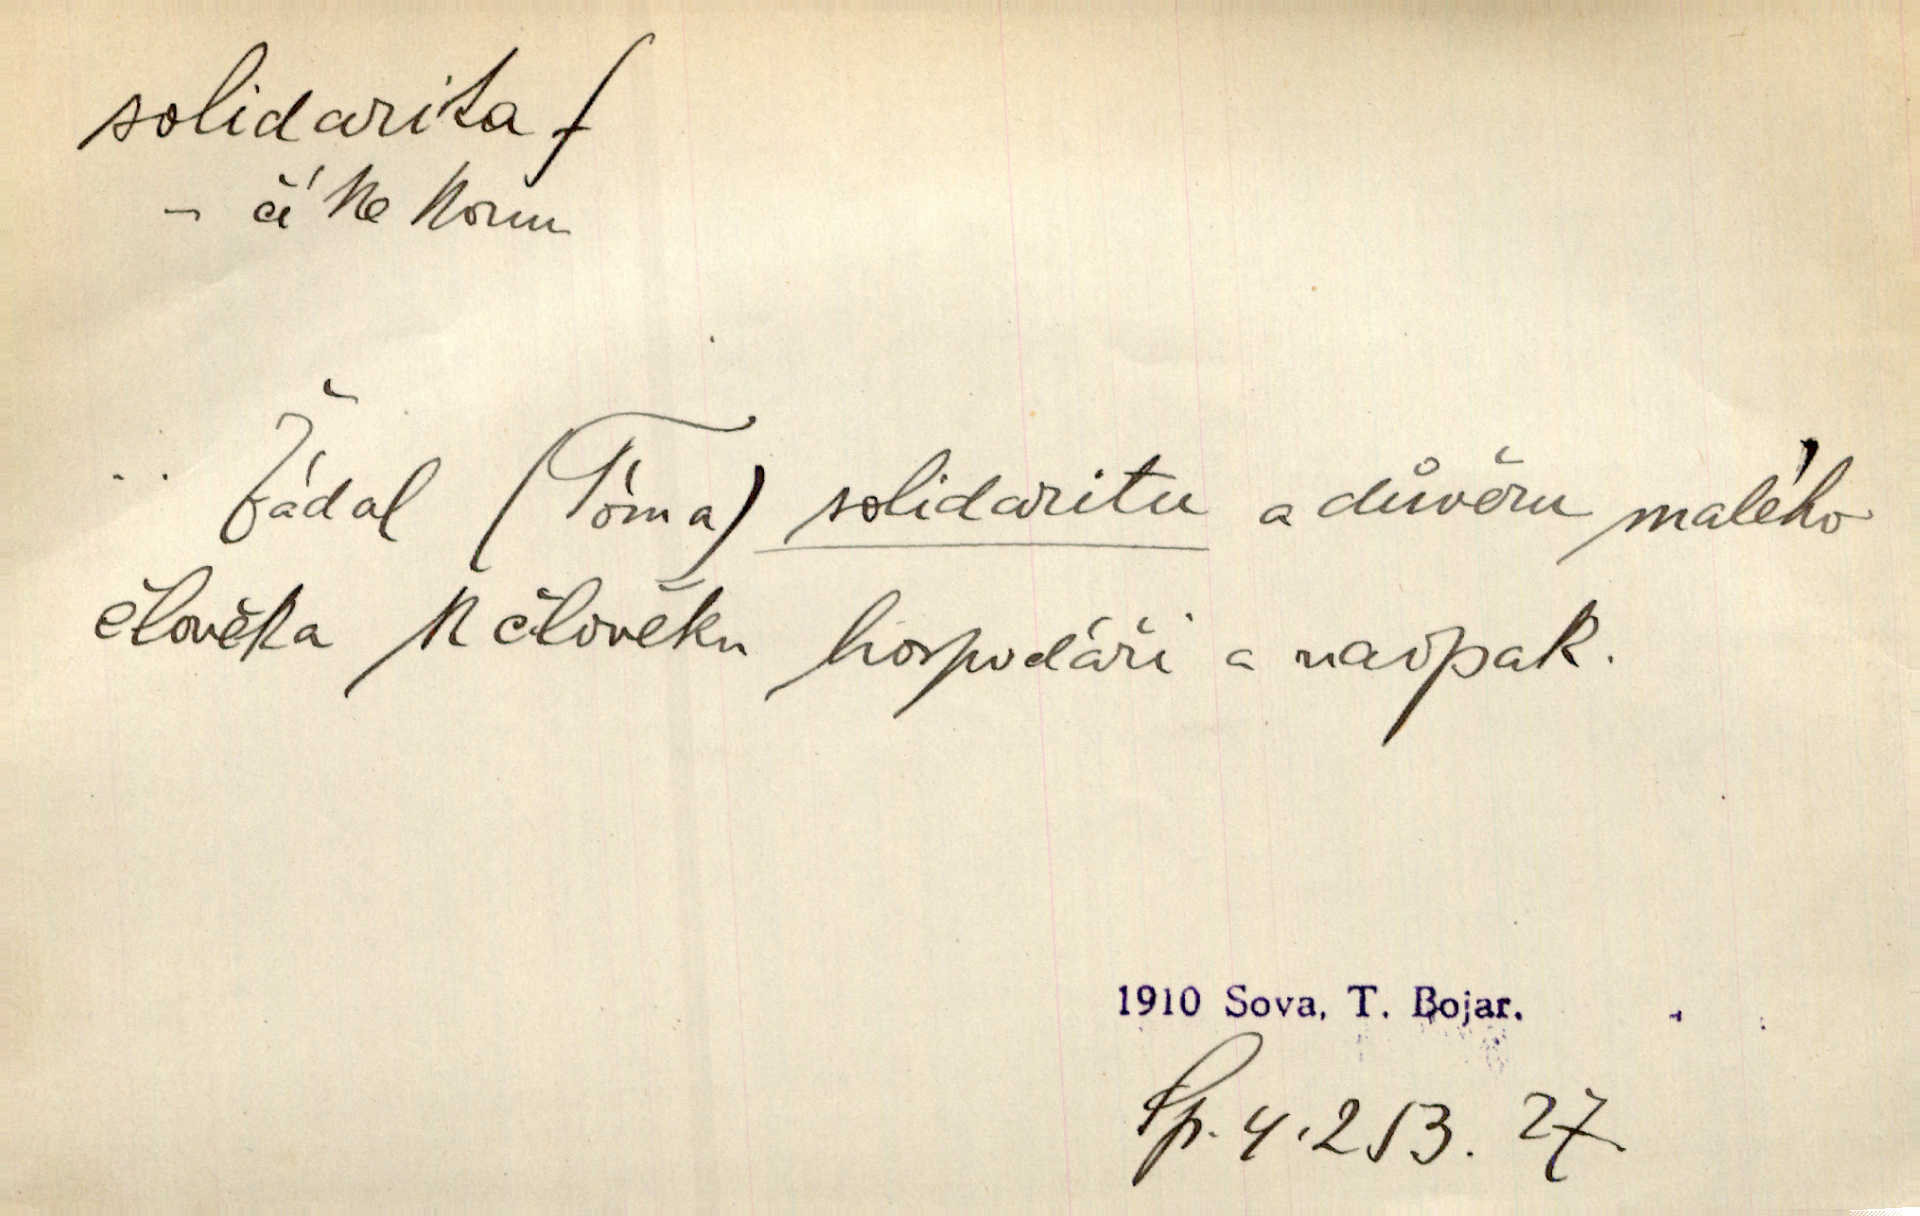 solidarita f
– čí ke komu
.. Žádal (Tóma) solidaritu a důvěru malého
člověka k člověku hospodáři a naopak.
1910 Sova, T. Bojar.
Sp. 4.253. 27